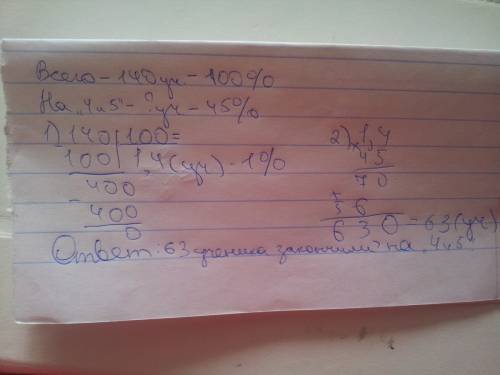 Всего - 140 уч - 100%
На "4 и 5" - ? уч - 45%
1) 140 | 100 =
100 | 1,4 (уч) - 1%
400
- 400
0
2) 1,4
× 45
70
+ 56
630 - 63 (уч)
Ответ: 63 ученика закончили на "4 и 5"